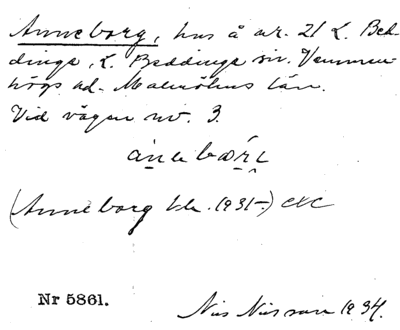 Anneborg, hus å nr. 21 L. Bed-
dinge, L. Beddinge sn. Vemmen-
högs hd. Malmöhus län.
Vid vägen nv. 3.
(Anneborg bl. 1931-)
Nr 5861.
Nils Nilsson 1934.